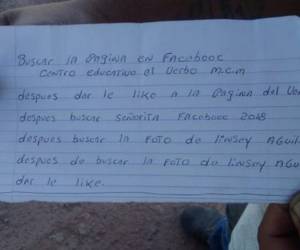 Buscar la Pagina en Facebooc
Centro educativo el Verbo M.C.M
despues dar le like a la Pagina del Ver
despues buscar Señorita Facebooc 2018
despues buscar la Foto de linsey Aguil
despues de buscar la Foto de linsey Agu
dar le like.